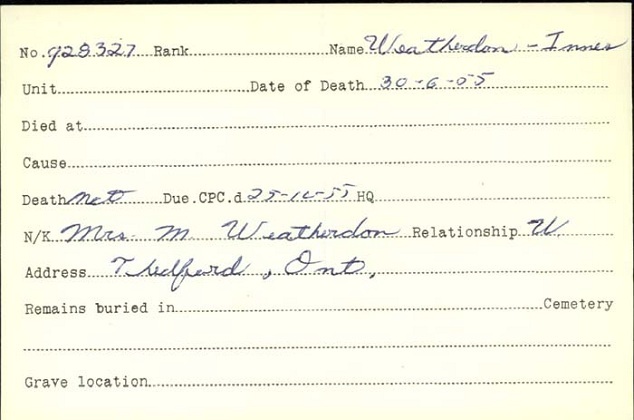 No. 928327 Rank Name Weatherdon - Innes
Unit Date of Death 30-6-55
Died at
Cause
Death not Due. CPC.d. 25-10-55 HQ
N/K Mrs. M Weatherdon Relationship W
Address Thedford, Ont,
Remains buried in Cemetery
Grave location